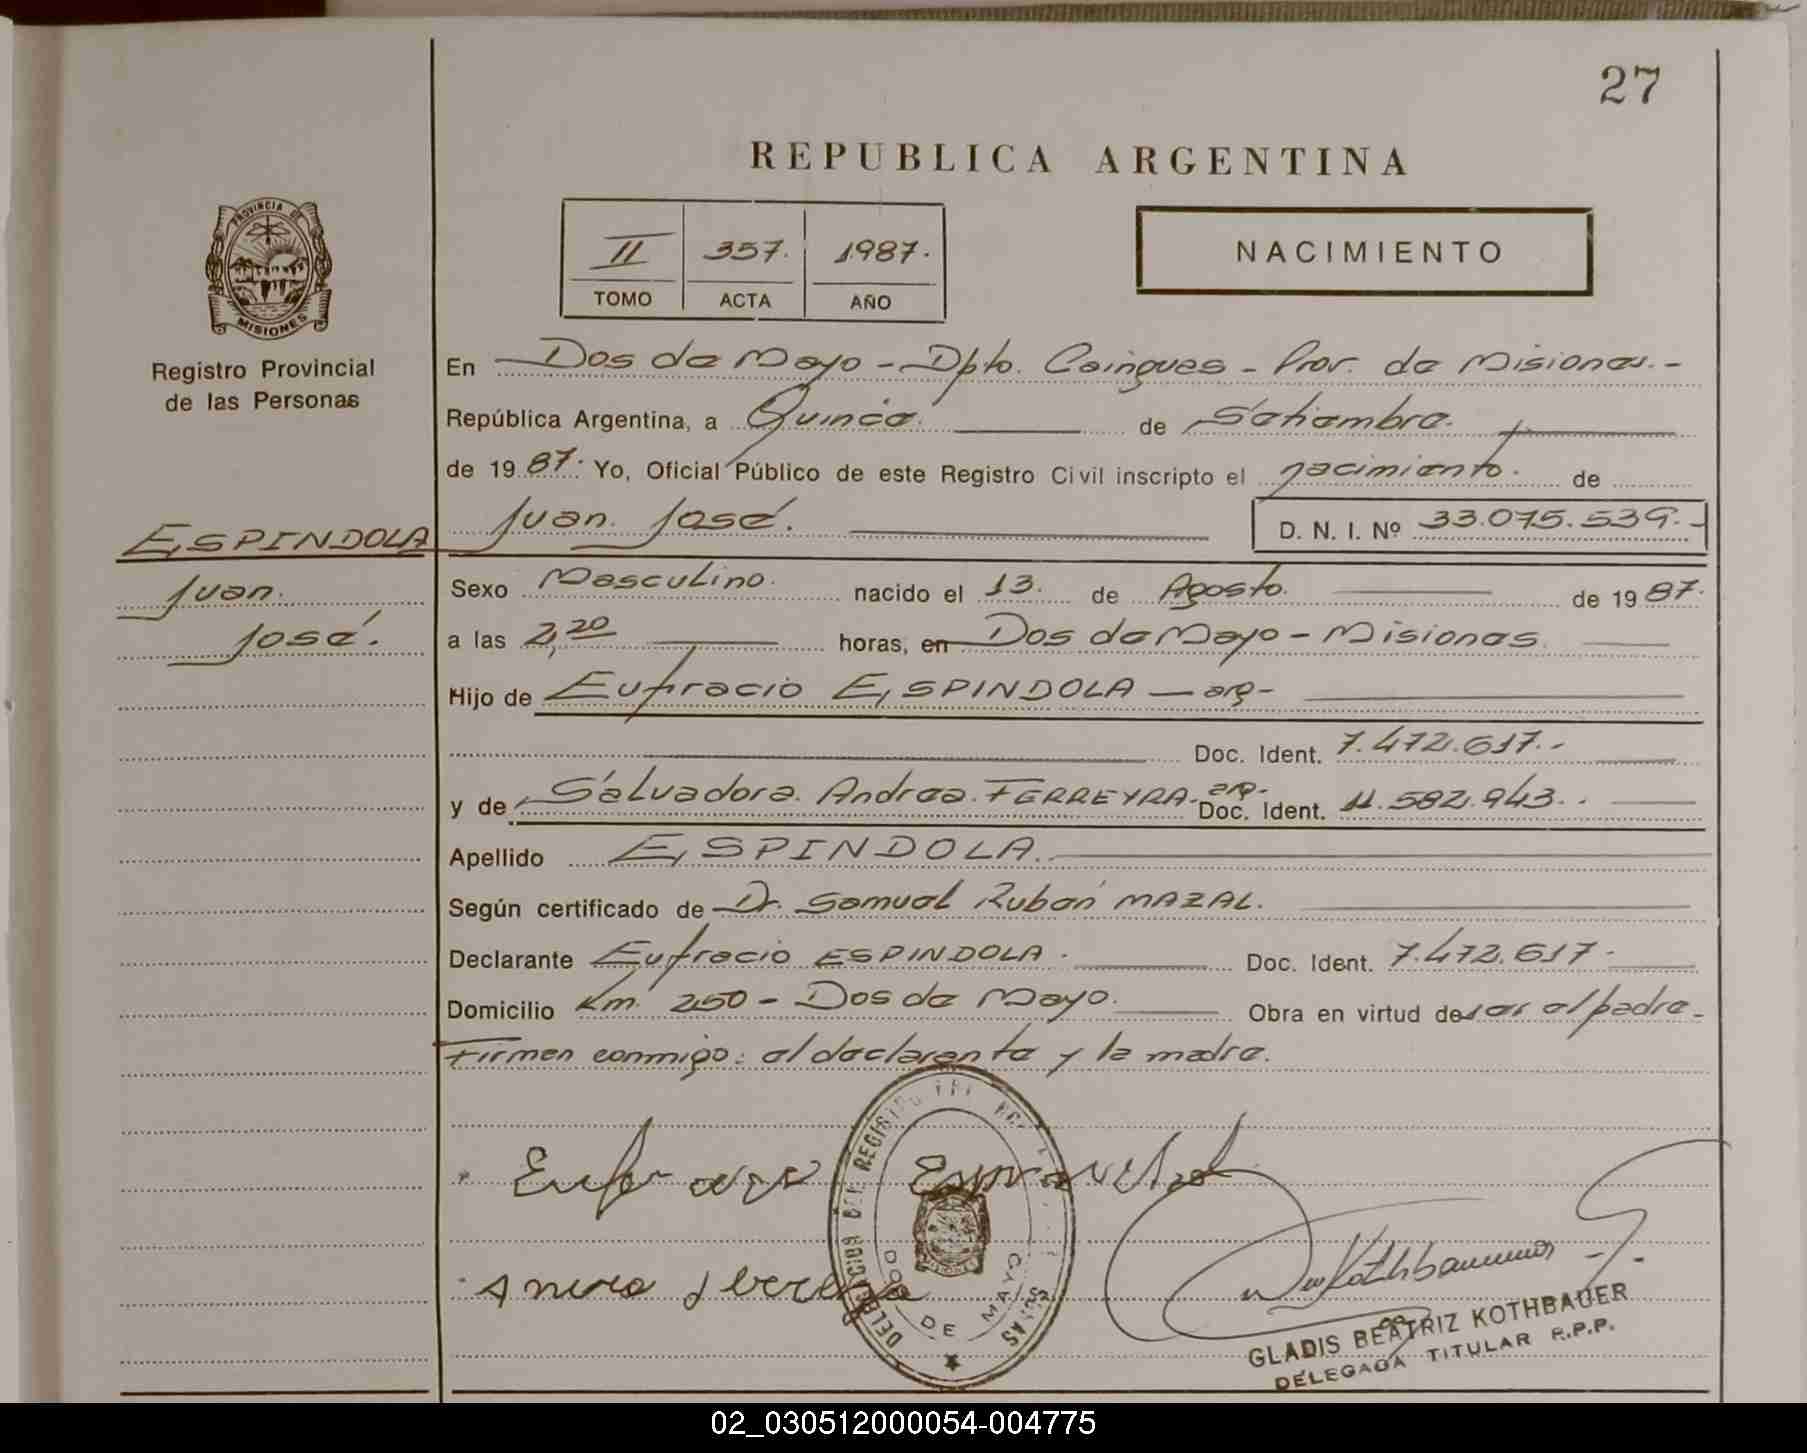 27
REPUBLICA ARGENTINA
PROVINCIA DE
MISIONES
Registro Provincial
de las Personas
II 357. 1987.
TOMO ACTA AÑO
NACIMIENTO
En Dos de Mayo - Dpto. Cainguas - Prov. de Misiones.-
República Argentina, a Quince. de Setiembre.
de 1987. Yo, Oficial Público de este Registro Civil inscripto el nacimiento. de
Juan José.
D. N. I. Nº 33.075.539.-
ESPINDOLA
Juan.
José.
Sexo Masculino. nacido el 13. de Agosto. de 1987.
a las 2,20 horas, en Dos de Mayo - Misiones.
Hijo de Eufracio ESPINDOLA - arg-
Doc. Ident. 7.472.617.-
y de Salvadora. Andrea. FERREYRA- arg- Doc. Ident. 11.582.943.
Apellido ESPINDOLA.
Según certificado de Dr. Samuel Rubén MAZAL.
Declarante Eufracio ESPINDOLA. Doc. Ident. 7.472.617.
Domicilio Km. 250 - Dos de Mayo. Obra en virtud de ser el padre-
Firman conmigo: el declarante y la madre.
DELEGACION DEL REGISTRO
DOS DE MAYO
Kothbauer
GLADIS BEATRIZ KOTHBAUER
DELEGADA TITULAR R.P.P.
02_030512000054-004775